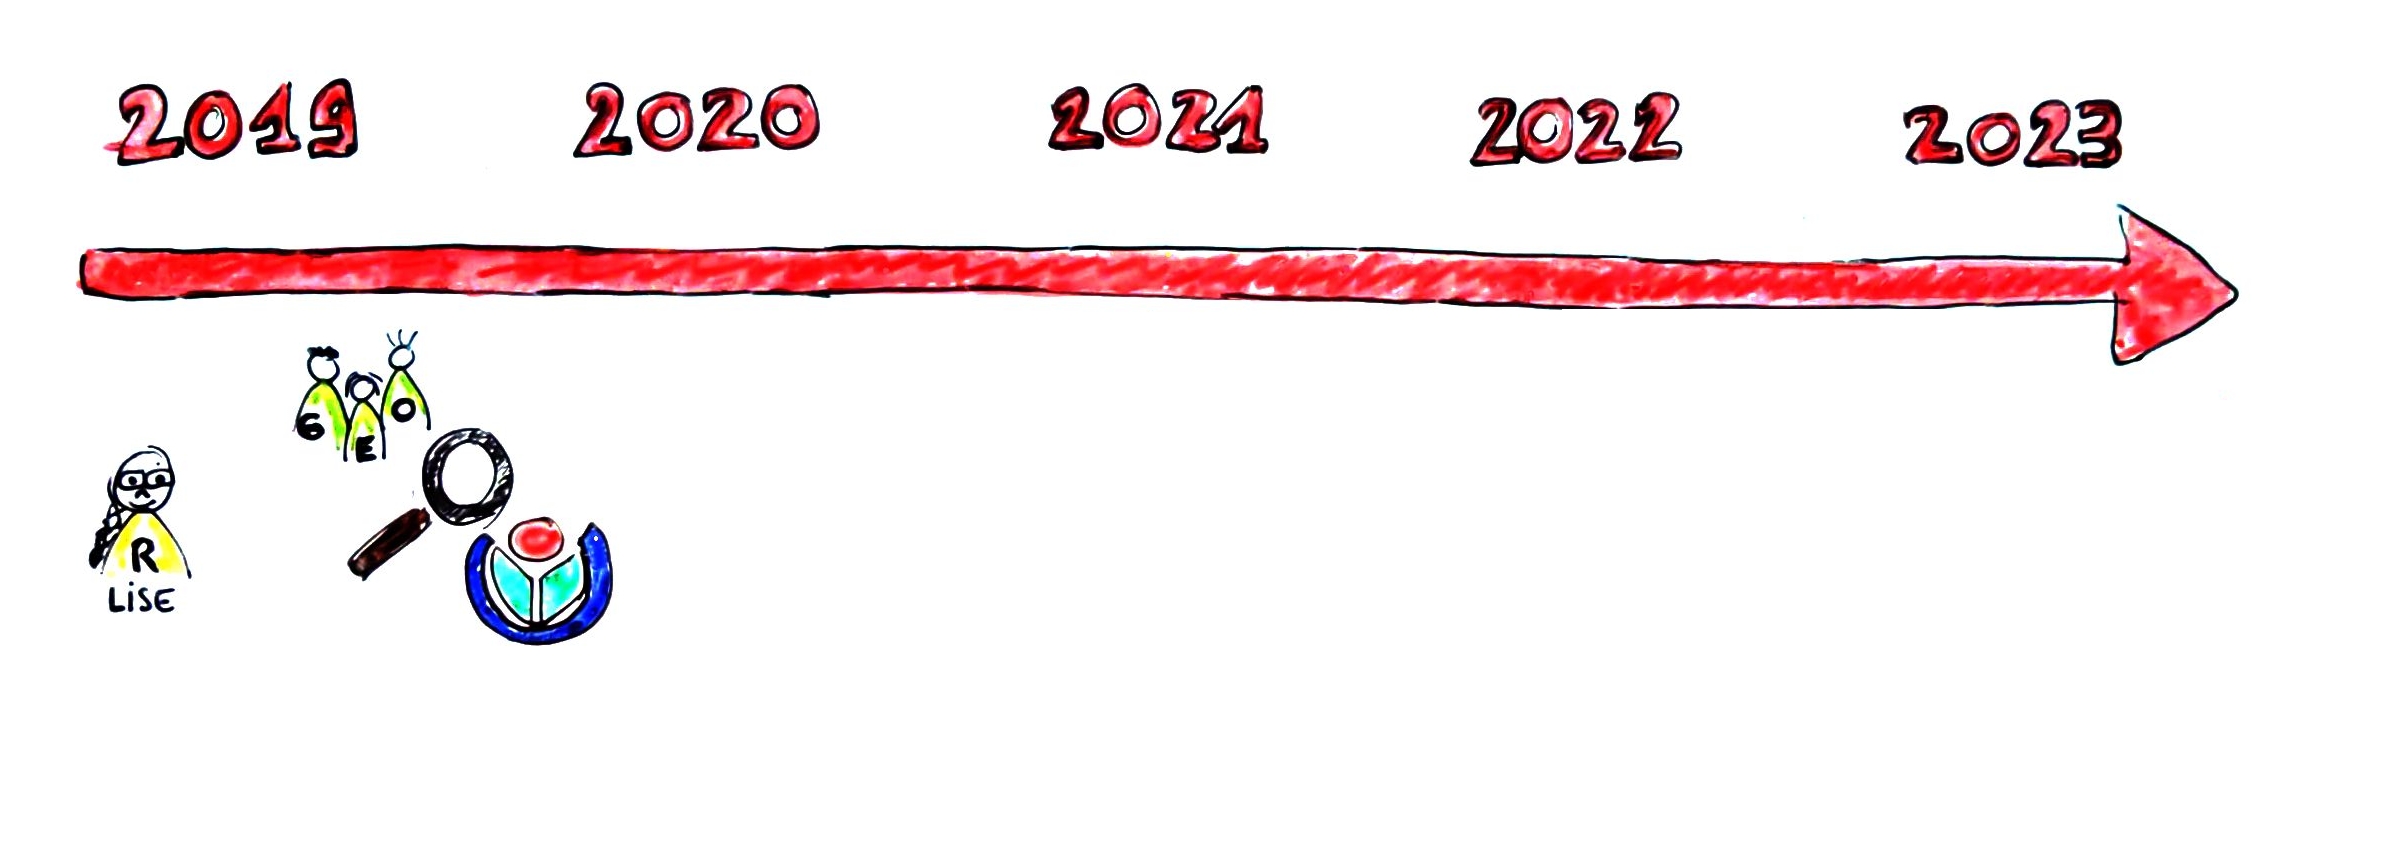 2019 2020 2021 2022 2023
G E O
R
LiSE